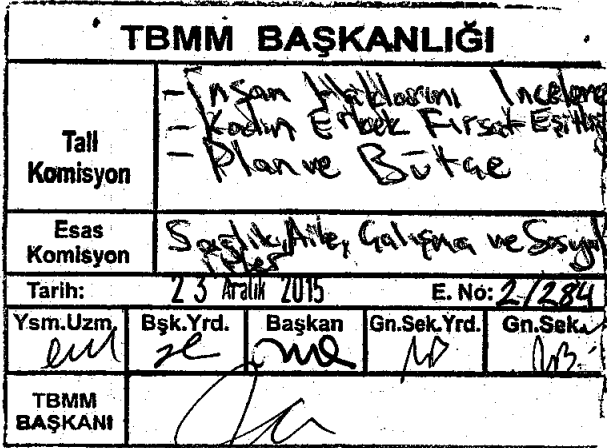 TBMM BAŞKANLIĞI
Tali
Komisyon
- İnsan Haklarını İnceleme
- Kadın Erkek Fırsat Eşitliği
- Plan ve Bütçe
Esas
Komisyon
Sağlık, Aile, Çalışma ve Sosyal
İşler
Tarih: 23 Aralık 2015 E. No: 2/284
Ysm.Uzm. Bşk.Yrd. Başkan Gn.Sek.Yrd. Gn.Sek.
TBMM
BAŞKANI